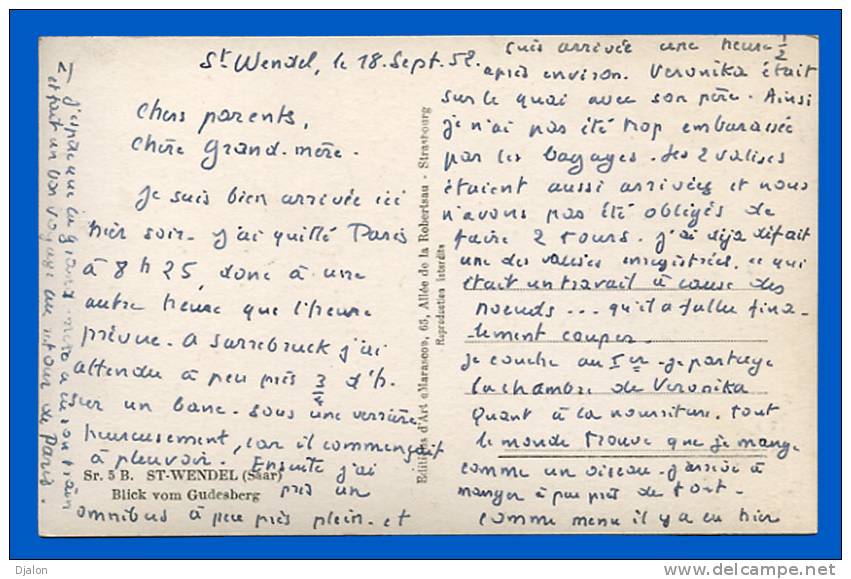 St Wendel, le 18. Sept. 52.
Chers parents,
Chère Grand-mère.
Je suis bien arrivée ici
hier soir. J'ai quitté Paris
à 8 h 25, donc à une
autre heure que l'heure
prévue. A Sarrebruck j'ai
attendu à peu près 3/4 d'h.
sur un banc. sous une verrière
heureusement, car il commençait
à pleuvoir. Ensuite j'ai
pris un
omnibus à peu près plein. et
Sr. 5 B. ST-WENDEL (Saar)
Blick vom Gudesberg
Editions d'Art "Marasco", 65, Allée de la Robertsau - Strasbourg
Reproduction interdite
suis arrivée une heure 1/2
après environ. Veronika était
sur le quai avec son père. Ainsi
je n'ai pas été trop embarassée
par les bagages. Les 2 valises
étaient aussi arrivées et nous
n'avons pas été obligés de
faire 2 tours. J'ai déjà défait
une des valises enregistrées, ce qui
était un travail à cause des
noeuds... qu'il a fallu fina-
lement couper.
Je couche au Ier. Je partage
la chambre de Veronika
Quant à la nourriture. tout
le monde trouve que je mange
comme un oiseau. J'arrive à
manger à peu près de tout.
comme menu il y a eu hier
2) J'espère que la grand-mère a eu son train
et fait un bon voyage au retour de Paris.
Djalon
delcampe.net